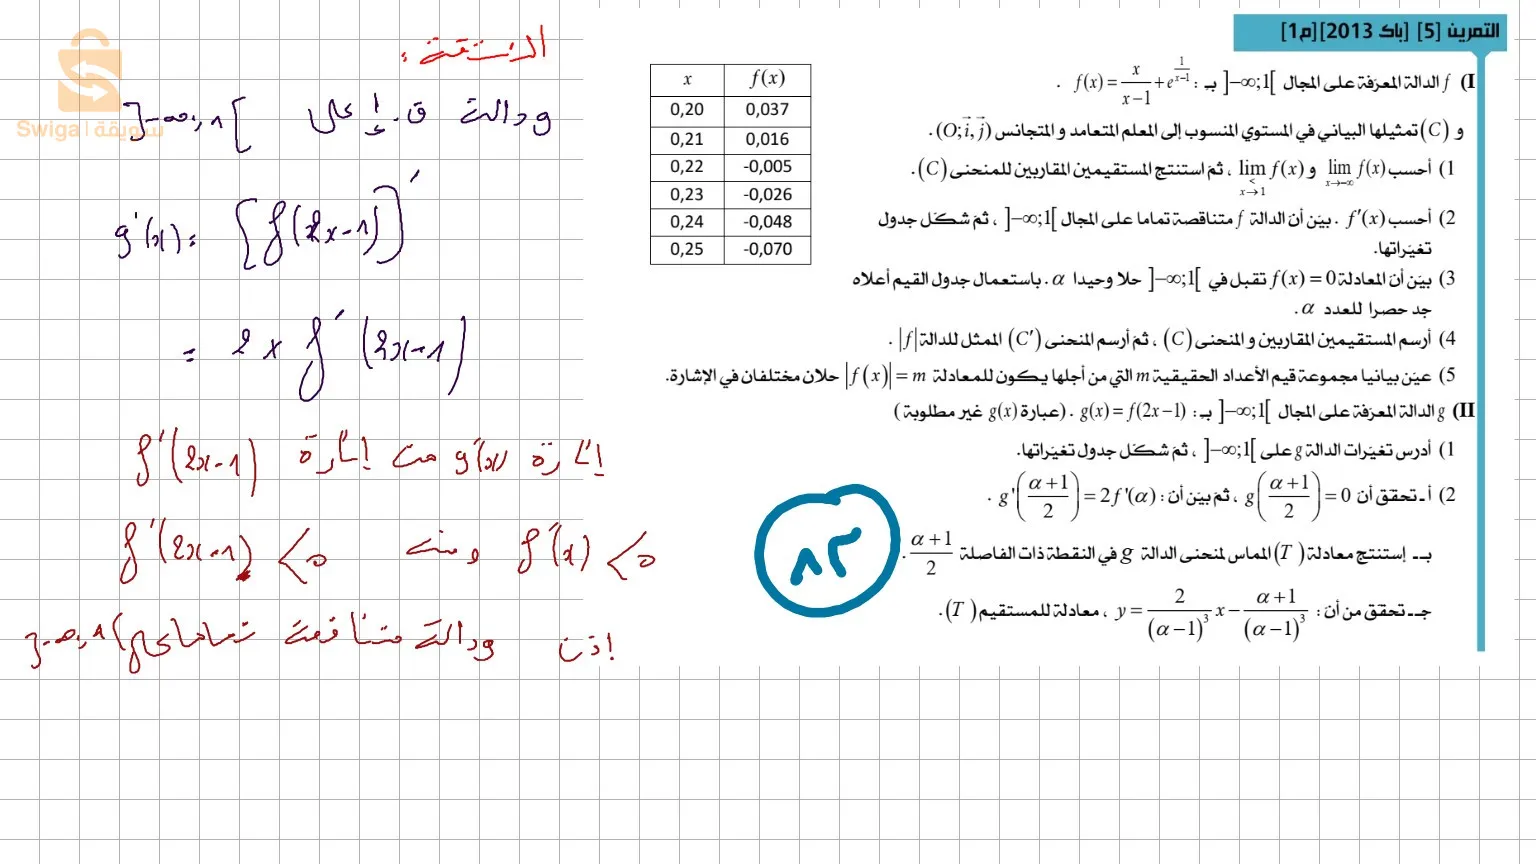 التمرين [5] [باك 2013][م1]
I) f الدالة المعرّفة على المجال ]−∞;1[ بـ : f(x) = x/(x−1) + e^(1/(x−1)) .
و (C) تمثيلها البياني في المستوي المنسوب إلى المعلم المتعامد و المتجانس (O; i⃗, j⃗).
1) أحسب lim f(x) x→−∞ و lim f(x) x→1 < ، ثمّ استنتج المستقيمين المقاربين للمنحنى (C).
2) أحسب f′(x) . بيّن أنّ الدالة f متناقصة تماما على المجال ]−∞;1[ ، ثمّ شكّل جدول
تغيّراتها.
3) بيّن أنّ المعادلة f(x) = 0 تقبل في ]−∞;1[ حلا وحيدا α . باستعمال جدول القيم أعلاه
جد حصرا للعدد α .
4) أرسم المستقيمين المقاربين و المنحنى (C) ، ثمّ أرسم المنحنى (C′) الممثل للدالة |f| .
5) عيّن بيانيا مجموعة قيم الأعداد الحقيقية m التي من أجلها يكون للمعادلة |f(x)| = m حلان مختلفان في الإشارة.
II) g الدالة المعرّفة على المجال ]−∞;1[ بـ : g(x) = f(2x−1) . (عبارة g(x) غير مطلوبة )
1) أدرس تغيّرات الدالة g على ]−∞;1[ ، ثمّ شكّل جدول تغيّراتها.
2) أ ـ تحقق أن g((α+1)/2) = 0 ، ثمّ بيّن أن : g'((α+1)/2) = 2f'(α) .
بـ ـ إستنتج معادلة (T) المماس لمنحنى الدالة g في النقطة ذات الفاصلة (α+1)/2 .
جـ ـ تحقق من أن : y = 2/(α−1)³ x − (α+1)/(α−1)³ ، معادلة للمستقيم (T) .
x f(x)
0,20 0,037
0,21 0,016
0,22 -0,005
0,23 -0,026
0,24 -0,048
0,25 -0,070
Swiga | سويقة
المشتقة :
g دالة ق.إ على ]-∞,1[
g'(x) = [f(2x-1)]'
= 2 × f'(2x-1)
إشارة g'(x) من إشارة f'(2x-1)
f'(x) < 0 ومنه f'(2x-1) < 0
إذن g دالة متناقصة تماما على ]-∞,1[